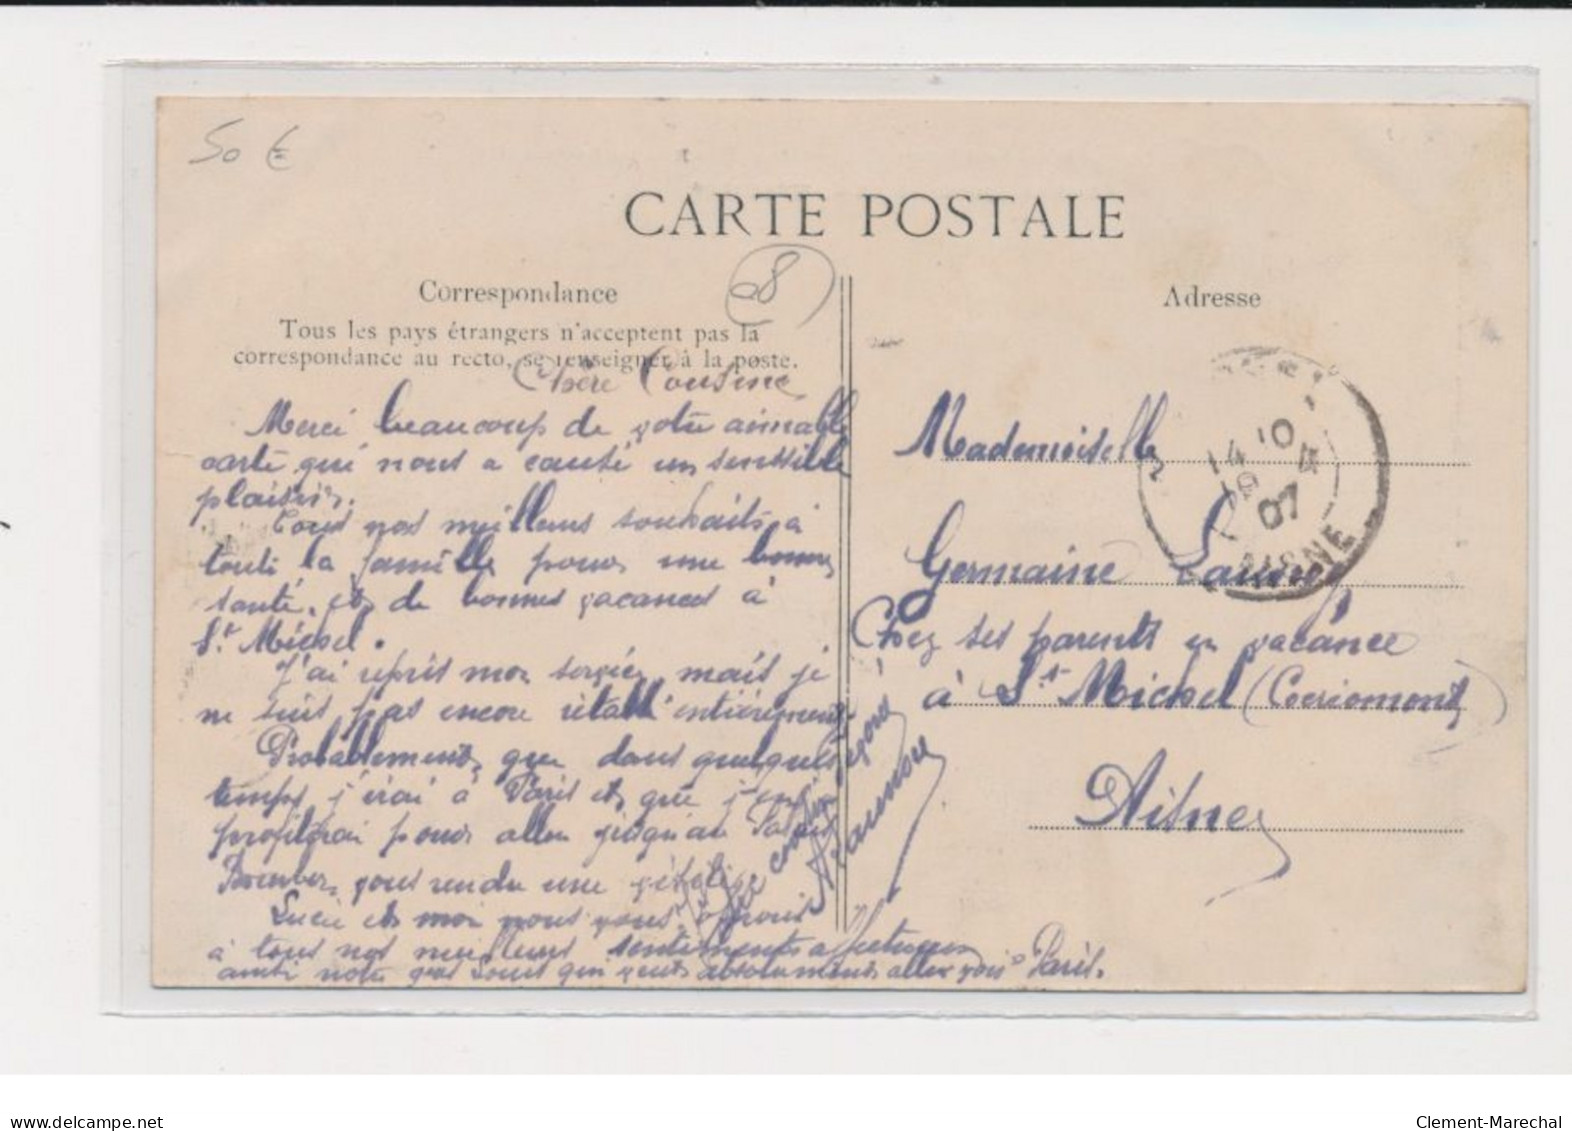 50 €
CARTE POSTALE
8
Correspondance
Tous les pays étrangers n'acceptent pas la
correspondance au recto, se renseigner à la poste.
Chère Cousine
Merci beaucoup de votre aimable
carte qui nous a causé un sensible
plaisir.
Tous nos meilleurs souhaits à
toute la famille pour une bonne
santé, et de bonnes vacances à
St Michel.
J'ai repris mon service, mais je
ne suis pas encore rétabli entièrement
Probablement que dans quelques
temps j'irai à Paris et que j'en
profiterai pour aller jusqu'au
vous rendre une
Lucie et moi nous vous
à tous nos meilleurs sentiments affectueux
notre gros qui veut absolument aller voir Paris.
Votre cousin
Adresse
Mademoiselle
Germaine
Chez ses parents en vacance
à St Michel
Aisne
14 10
07
AISNE
delcampe.net
Clement-Marechal